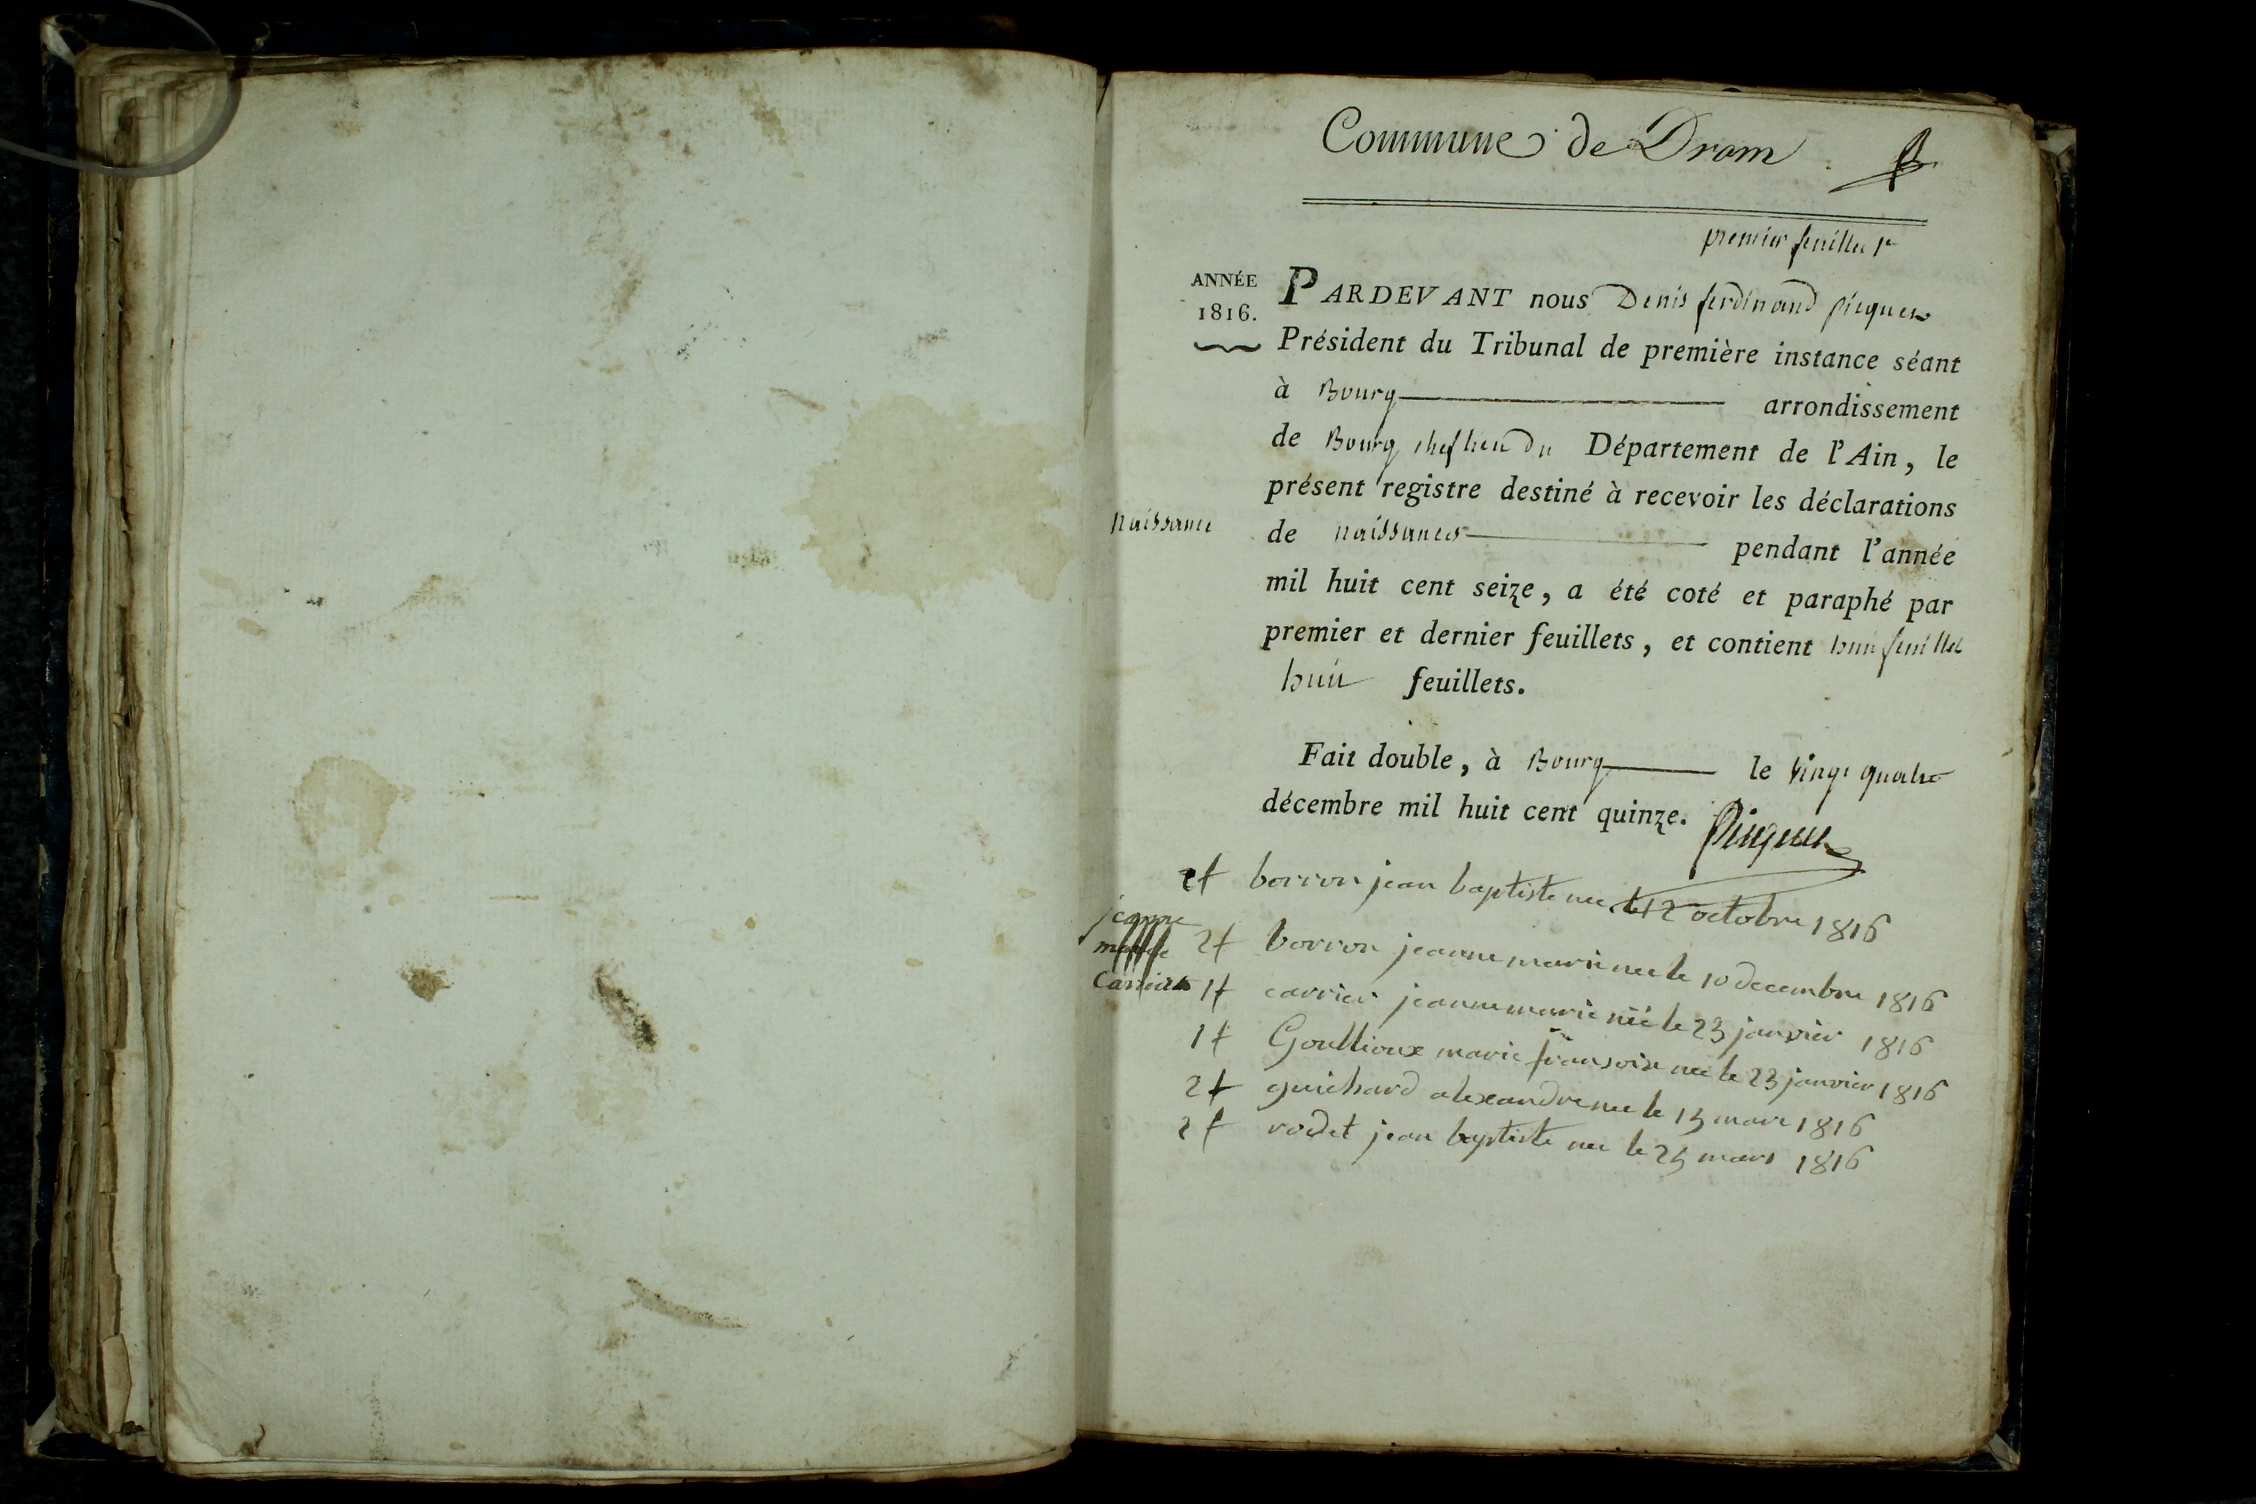 Commune de Drom
premier feuillet
ANNÉE
1816.
PARDEVANT nous Denis ferdinand picquet
Président du Tribunal de première instance séant
à Bourg arrondissement
de Bourg chef lieu du Département de l'Ain, le
présent registre destiné à recevoir les déclarations
naissance
de naissances pendant l'année
mil huit cent seize, a été coté et paraphé par
premier et dernier feuillets, et contient huit feuillet
huit feuillets.
Fait double, à Bourg le vingt quatre
décembre mil huit cent quinze.
Picquet
2f borron jean baptiste nee le 12 octobre 1816
jeanne
marie
Carrier
2f borron jeanne marie nee le 10 decembre 1816
1f carrier jeanne marie née le 23 janvier 1816
1f Goullioux marie fransoise nee le 23 janvier 1816
2f guichard alexandre nee le 15 mars 1816
2f rodet jean baptiste nee le 25 mars 1816